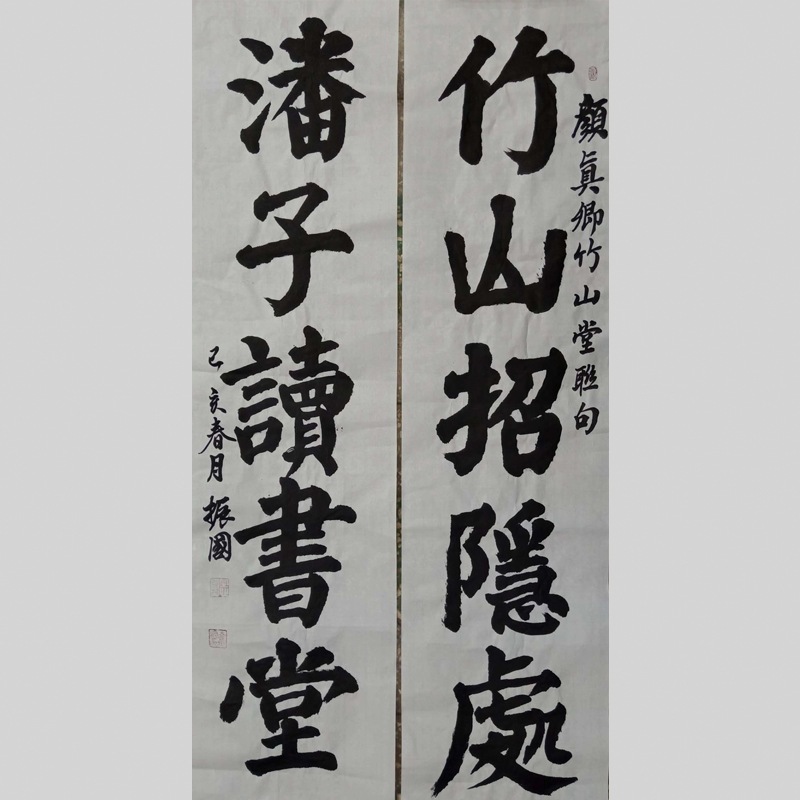 顏真卿竹山堂聯句
竹山招隱處
潘子讀書堂
己亥春月振國